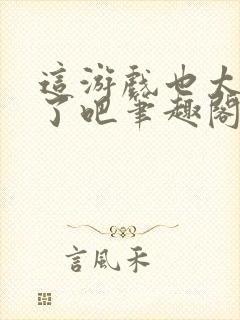 這游戲也太
了吧筆趣閣
言風禾